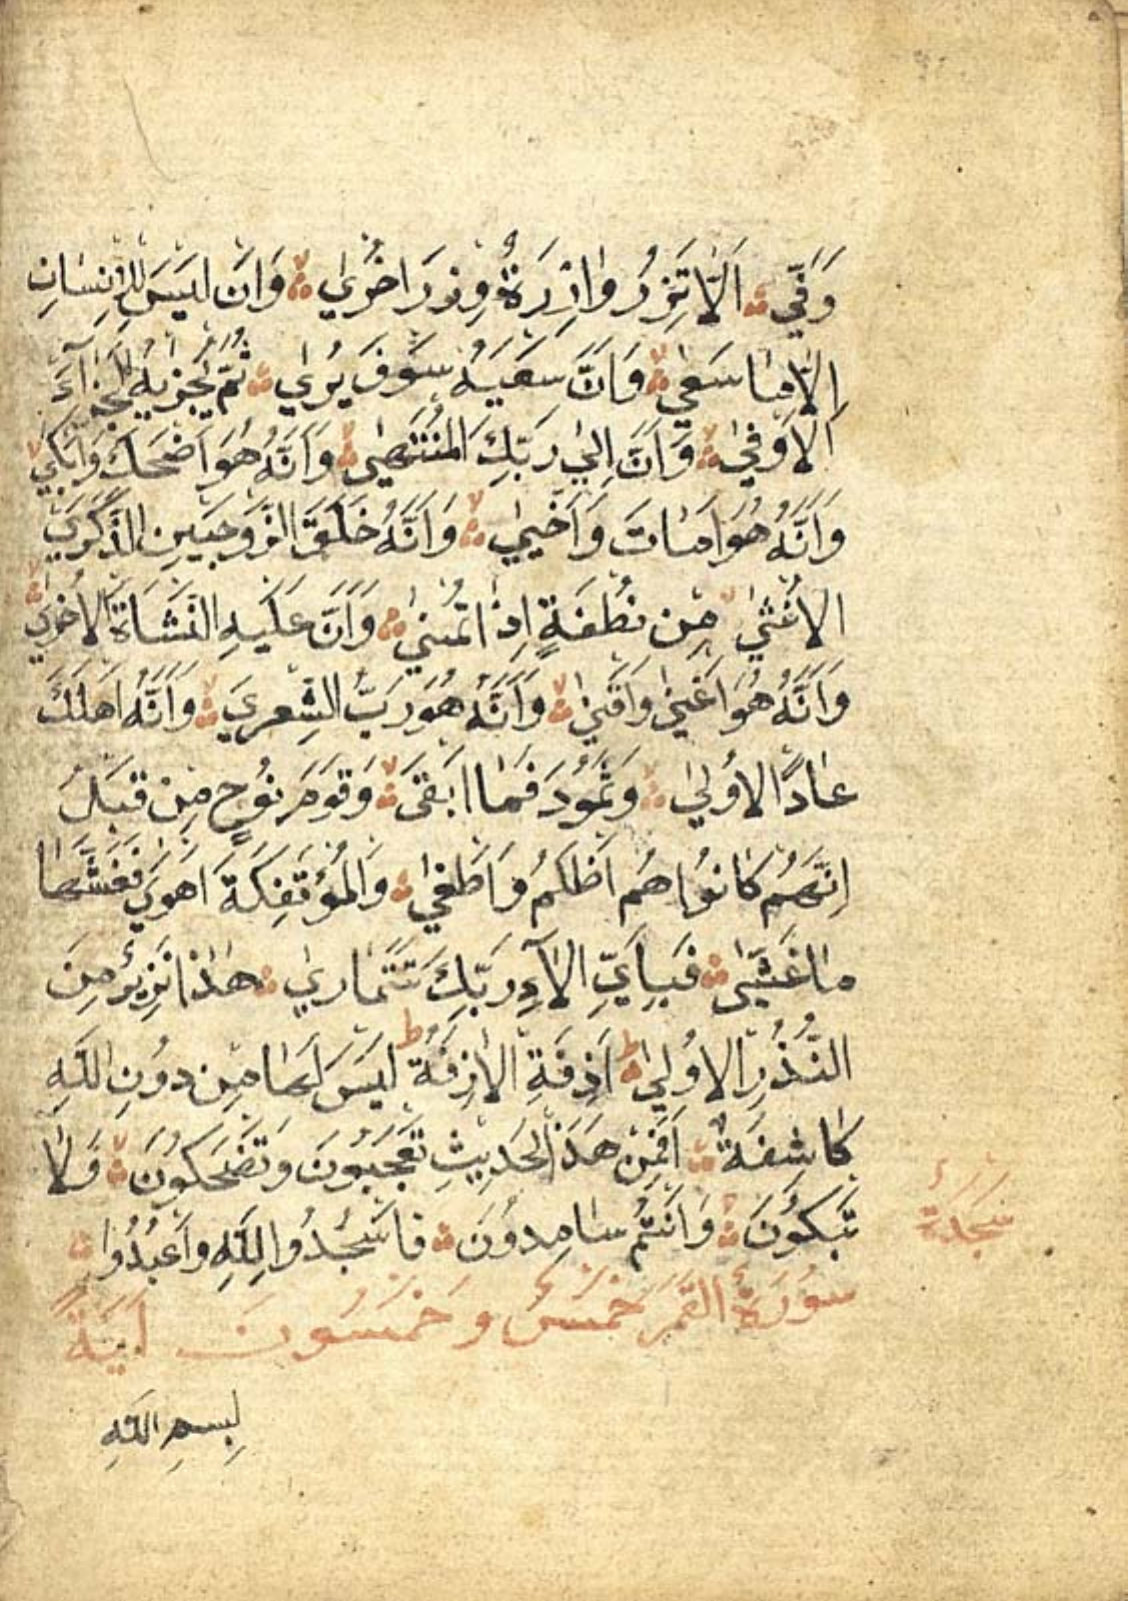 وَفّٰي اَلَّا تَزِرُ وَازِرَةٌ وِزْرَ اُخْرٰي وَاَنْ لَيْسَ لِلْاِنْسَانِ
اِلَّا مَا سَعٰي وَاَنَّ سَعْيَهُ سَوْفَ يُرٰي ثُمَّ يُجْزٰيهُ الْجَزَآءَ
الْاَوْفٰي وَاَنَّ اِلٰي رَبِّكَ الْمُنْتَهٰي وَاَنَّهُ هُوَ اَضْحَكَ وَاَبْكٰي
وَاَنَّهُ هُوَ اَمَاتَ وَاَحْيٰي وَاَنَّهُ خَلَقَ الزَّوْجَيْنِ الذَّكَرَ وَ
الْاُنْثٰي مِنْ نُطْفَةٍ اِذَا تُمْنٰي وَاَنَّ عَلَيْهِ النَّشْاَةَ الْاُخْرٰي
وَاَنَّهُ هُوَ اَغْنٰي وَاَقْنٰي وَاَنَّهُ هُوَ رَبُّ الشِّعْرٰي وَاَنَّهُ اَهْلَكَ
عَادًا الْاُولٰي وَثَمُودَ فَمَا اَبْقٰي وَقَوْمَ نُوحٍ مِنْ قَبْلُ
اِنَّهُمْ كَانُوا هُمْ اَظْلَمَ وَاَطْغٰي وَالْمُؤْتَفِكَةَ اَهْوٰي فَغَشّٰهَا
مَا غَشّٰي فَبِاَيِّ الْاٰءِ رَبِّكَ تَتَمَارٰي هٰذَا نَذِيرٌ مِنَ
النُّذُرِ الْاُولٰي اَزِفَةِ الْاٰزِفَةُ لَيْسَ لَهَا مِنْ دُونِ اللّٰهِ
كَاشِفَةٌ اَفَمِنْ هَذَا الْحَدِيثِ تَعْجَبُونَ وَتَضْحَكُونَ وَلَا
تَبْكُونَ وَاَنْتُمْ سَامِدُونَ فَاسْجُدُوا لِلّٰهِ وَاعْبُدُوا
سَجْدَة
سُورَةُ الْقَمَرِ خَمْسٌ وَخَمْسُونَ اٰيَةً
بِسْمِ اللّٰهِ